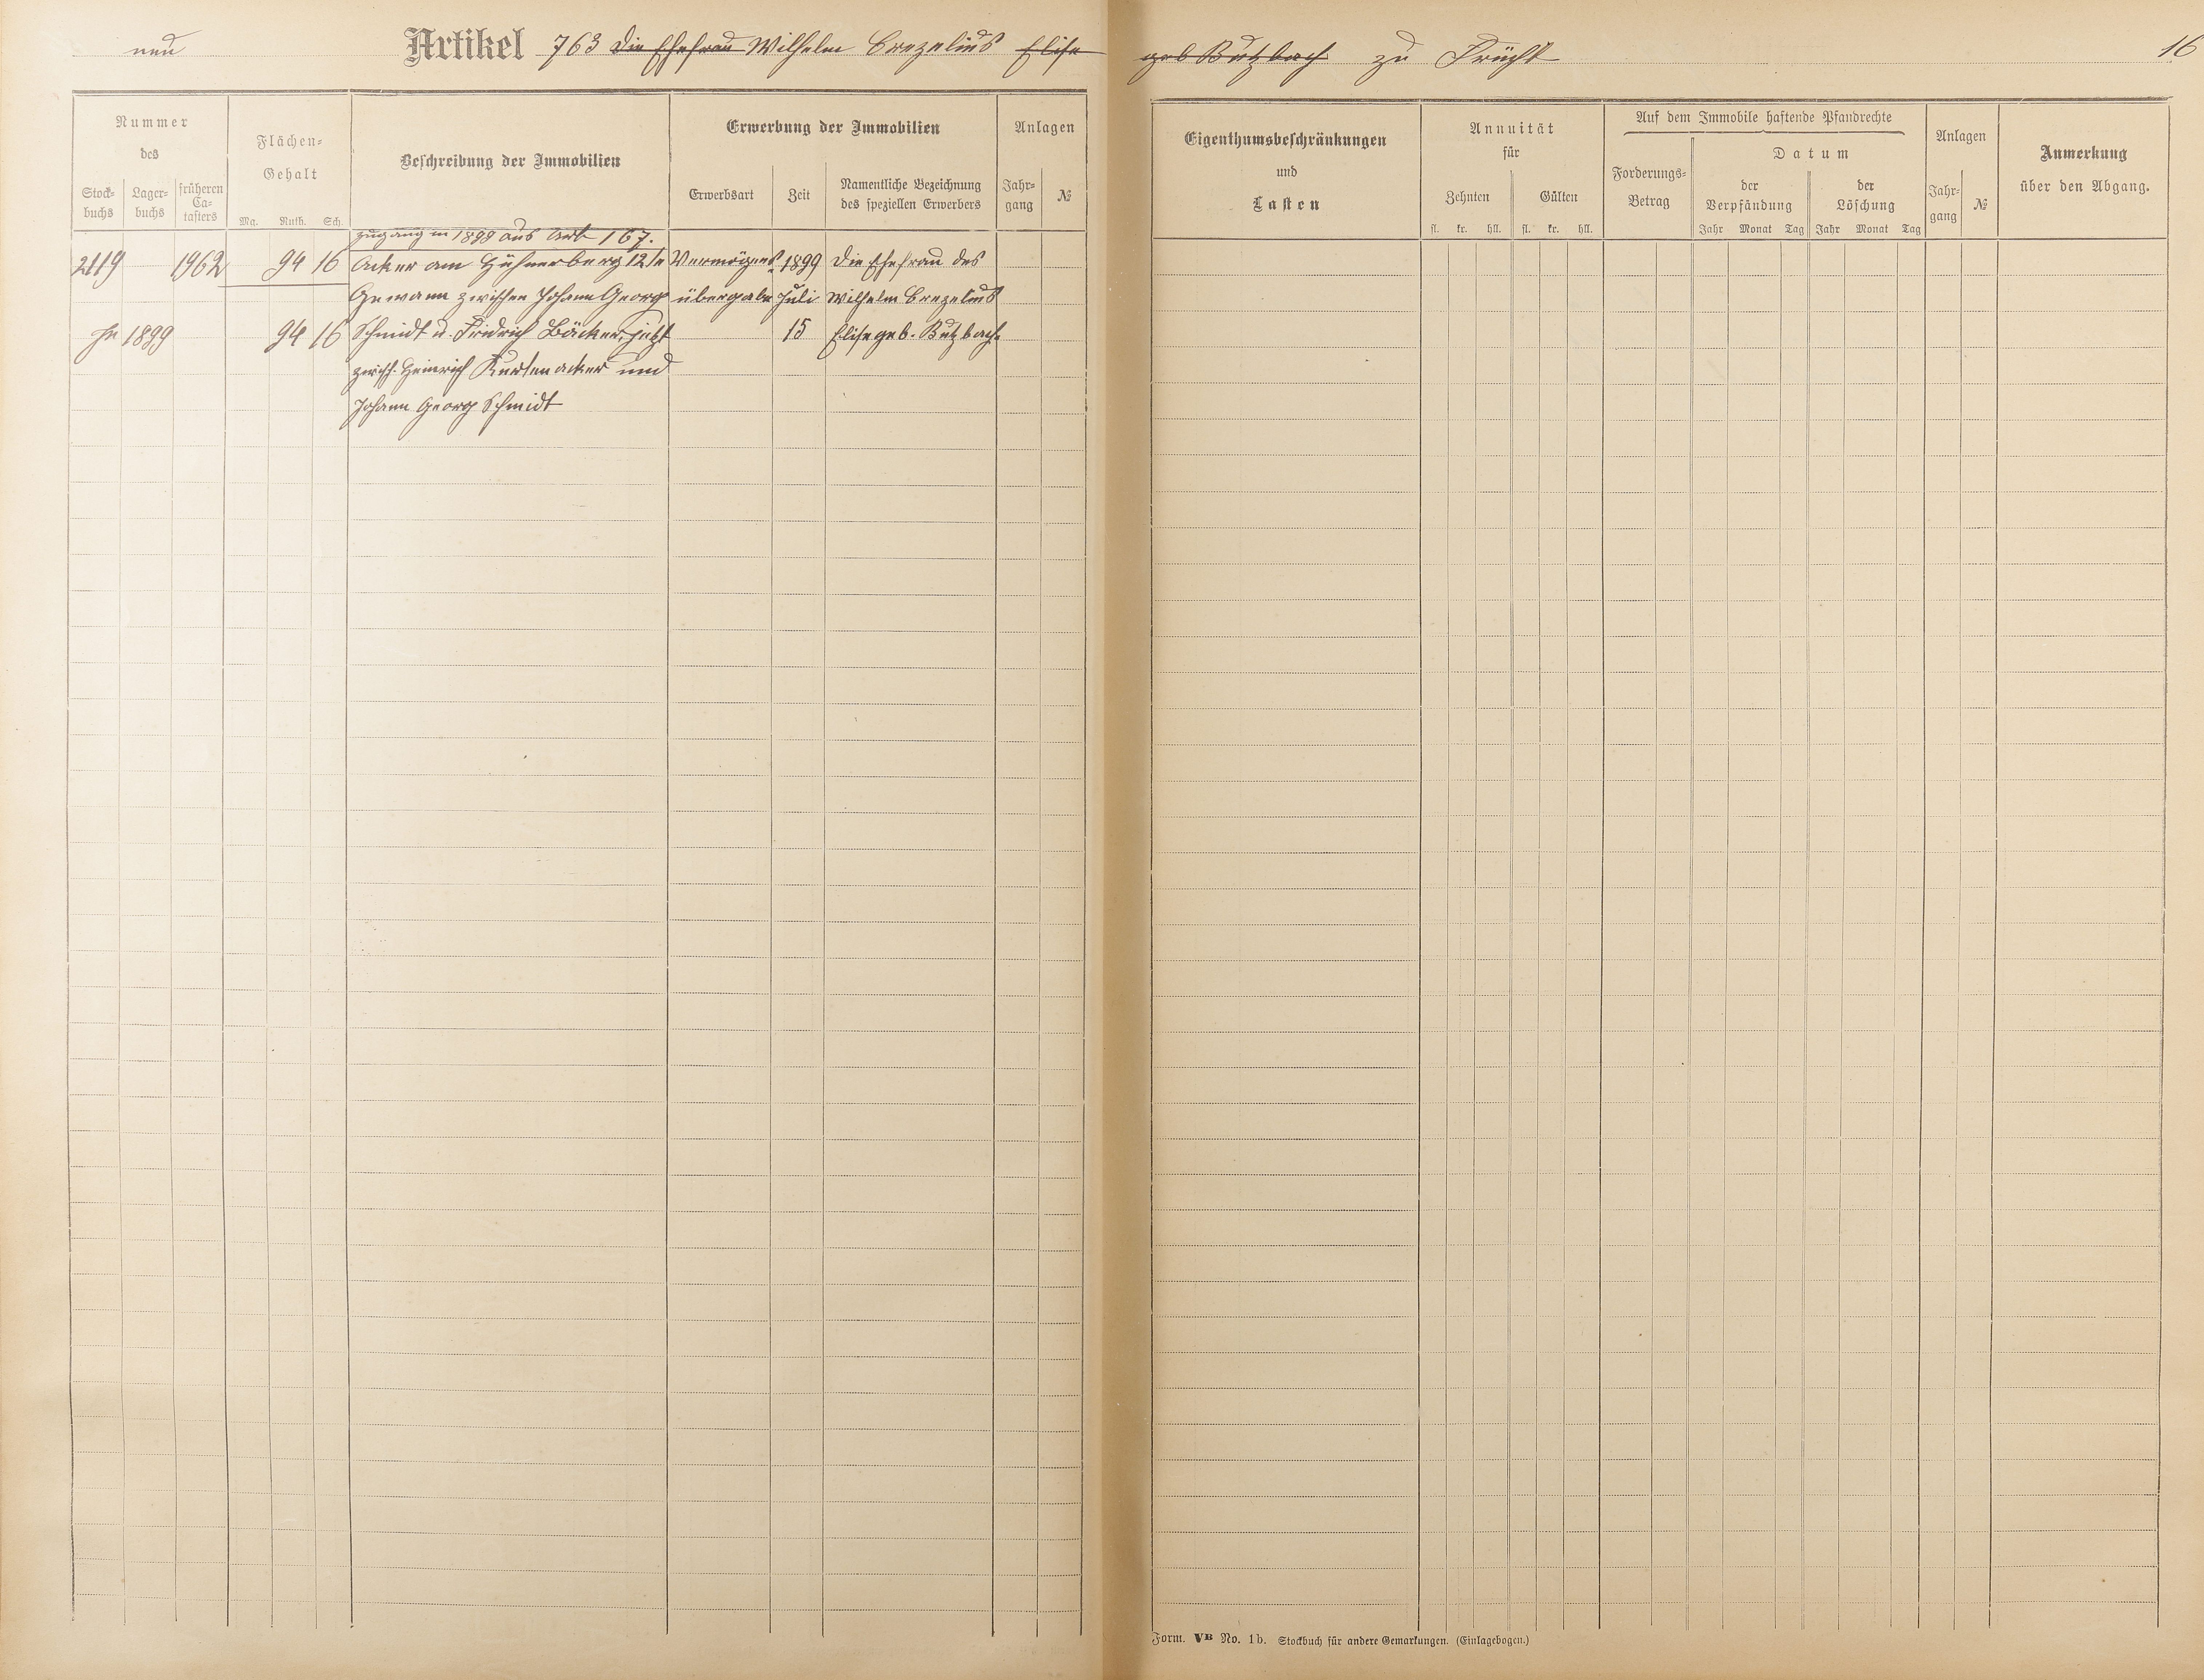 neu Artikel 763 die Ehefrau Wilhelm Crezelius Elise geb Butzbach zu Frücht 16
Nummer
des
Stock-
buchs
Lager-
buchs
früheren
Ca-
tasters
Flächen-
Gehalt
Mg. Ruth. Sch.
Beschreibung der Immobilien
Erwerbung der Immobilien
Erwerbsart
Zeit
Namentliche Bezeichnung
des speziellen Erwerbers
Anlagen
Jahr-
gang
№
Zugang in 1899 aus Art 167.
2119 1962 94 16 Acker am Hühnerberg 12te Vermögens- 1899 die Ehefrau des
Gewann zwischen Johann Georg übergabe Juli Wilhelm Crezelius
In 1899 94 16 Schmidt u. Fridrich Bäcker, jetzt 15 Elise geb. Butzbach
zwisch. Heinrich Kurtenacker und
Johann Georg Schmidt
Eigenthumsbeschränkungen
und
Lasten
Annuität
für
Zehnten
Gülten
fl. kr. hll. fl. kr. hll.
Auf dem Immobile haftende Pfandrechte
Forderungs-
Betrag
Datum
der
Verpfändung
der
Löschung
Jahr Monat Tag Jahr Monat Tag
Anlagen
Jahr-
gang
№
Anmerkung
über den Abgang.
Form. VB No. 1b. Stockbuch für andere Gemarkungen. (Einlagebogen.)